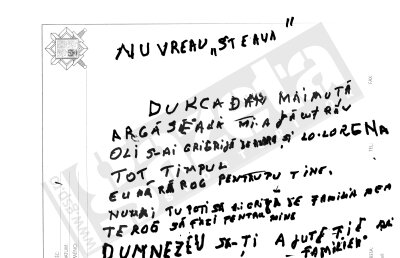 NU VREAU „STEAUA"
DUKCADAM MAIMUTĂ
ARGĂSEALA MIA FĂCUT RĂU
OLI S-AI GRIGIJĂ DE ȘI LO-LORENA
TOT TIMPUL
EU MĂ RĂROG PENTRU TINE.
NUMAI TU POTI SĂ AI GRIJA DE FAMILIA MEA
TEROG SĂ FACI PENTRU MINE
DUMNEZEU SĂ-ȚI AJUTE ȚIE
FAMILIEI